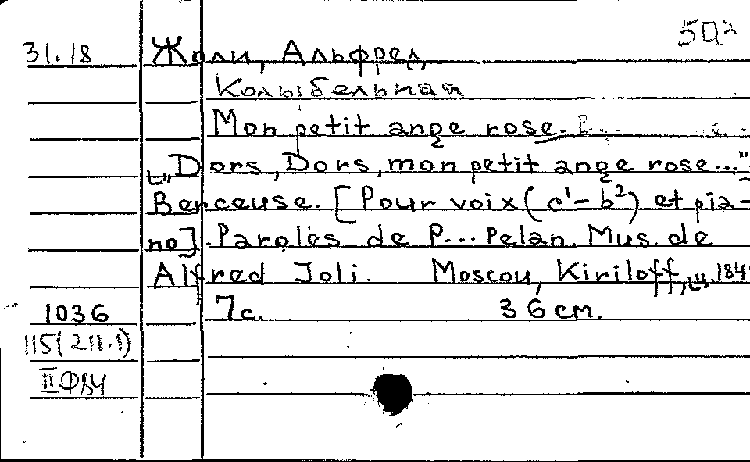 31.18 Жоли, Альфред
Колыбельная
Mon petit ange rose.
„Dors, Dors, mon petit ange rose..."
Berceuse. [Pour voix (c¹-b²) et pia-
no]. Paroles de P... Pelan. Mus. de
Alfred Joli. Moscou, Kiriloff,
1036 7c. 36 cm.
115(211.1)